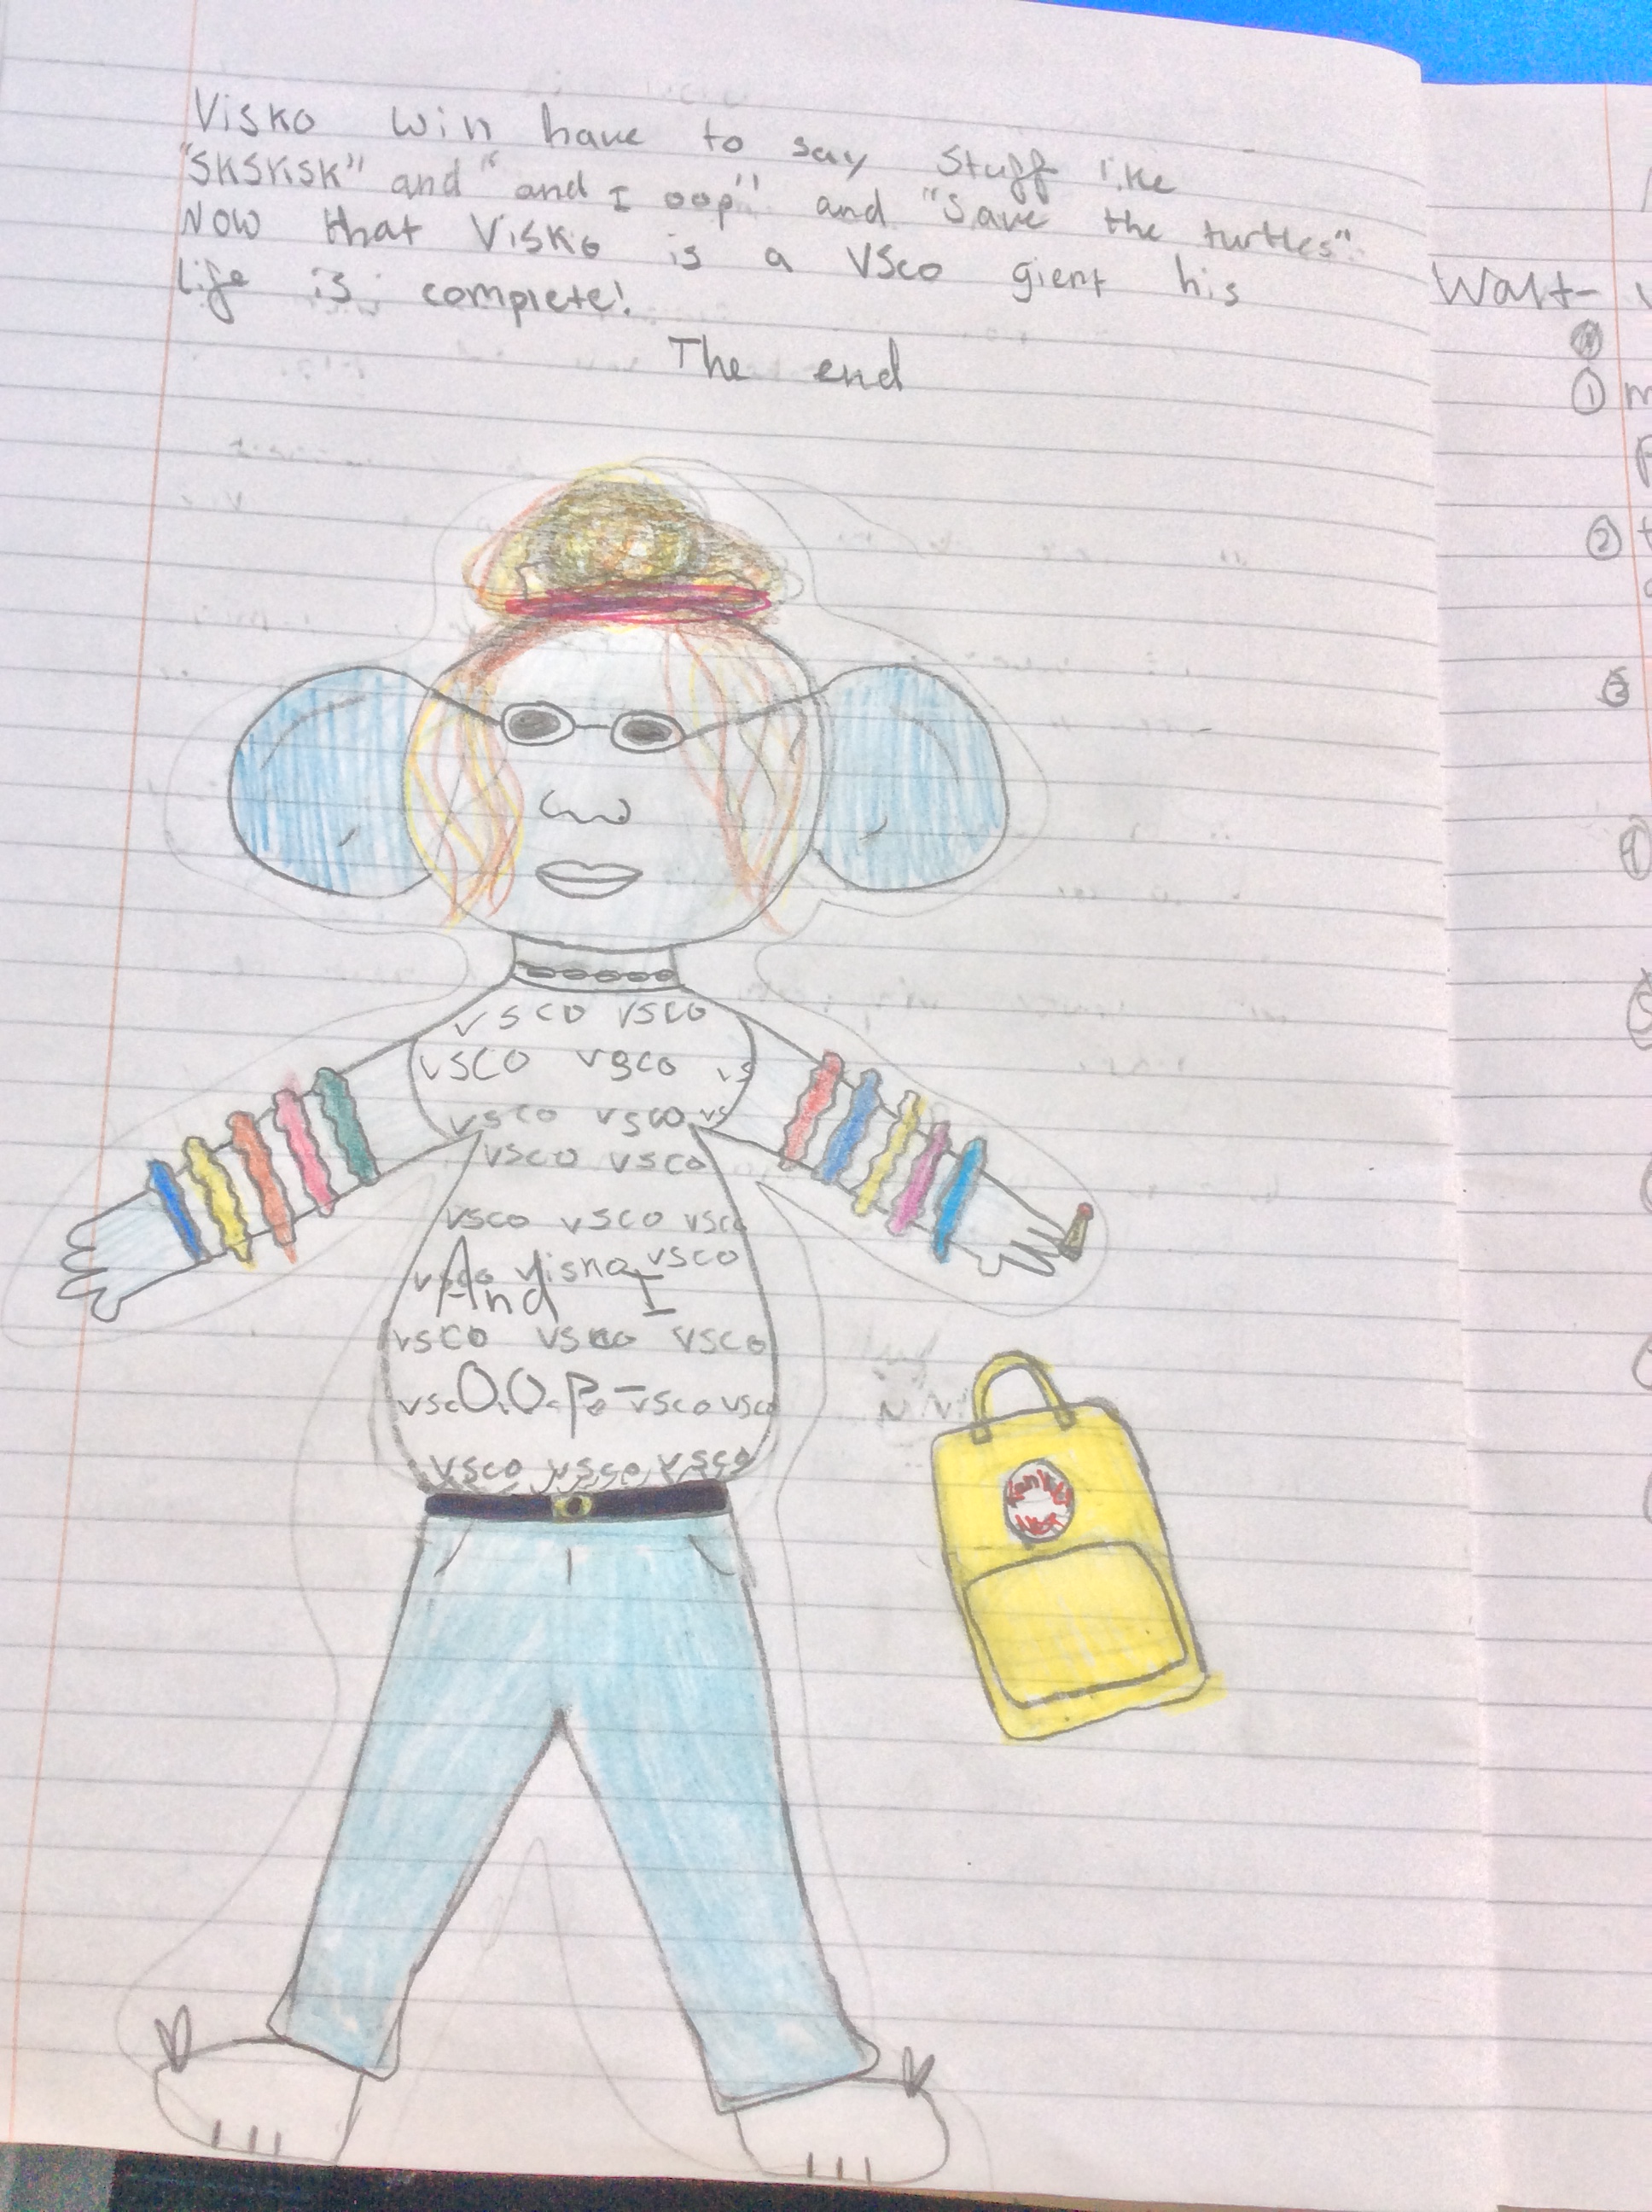 Visko win have to say stuff like
"SKSKSK" and "and I oop" and "Save the turtles".
Now that Visko is a VSco gient his
life is complete!
The end
vsco vsco
vsco vsco vs
vsco vsco vs
vsco vsco
vsco vsco vsco
vsco visko vsco
And I
vsco vsco vsco
vsc O.O.P. - vsco vsco
vsco vsco vsco
Walt-
1 m
2 t
3
4